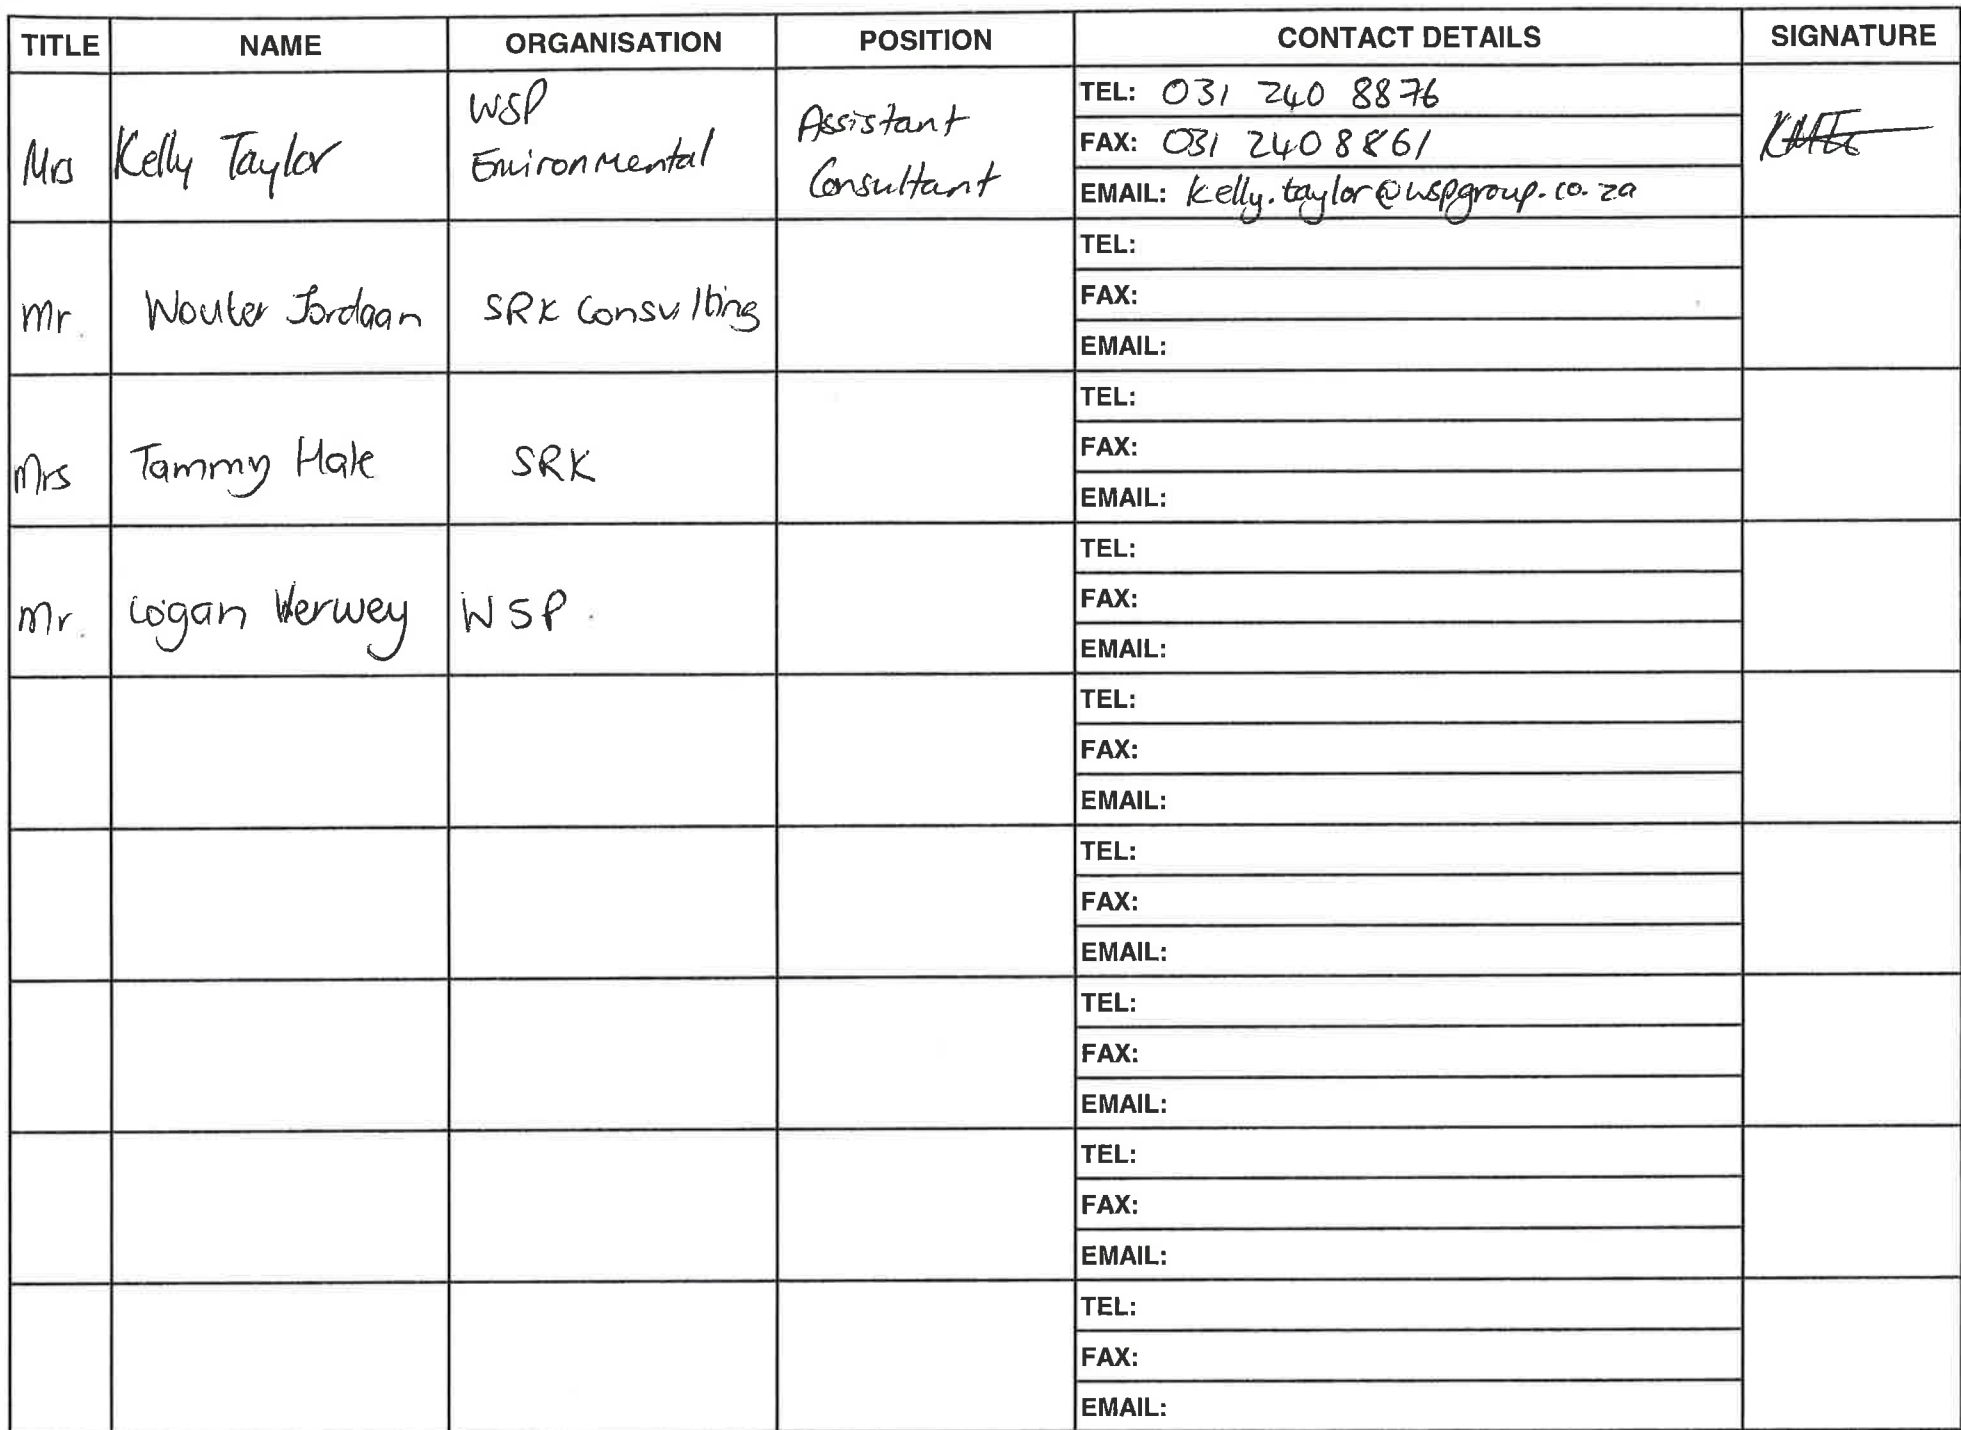 TITLE NAME ORGANISATION POSITION CONTACT DETAILS SIGNATURE
Mrs Kelly Taylor WSP Environmental Assistant Consultant
TEL: 031 240 8876
FAX: 031 240 8861
EMAIL: kelly.taylor@wspgroup.co.za
Mr. Wouter Jordaan SRK Consulting
TEL:
FAX:
EMAIL:
Mrs Tammy Hale SRK
TEL:
FAX:
EMAIL:
Mr. Logan Verwey WSP
TEL:
FAX:
EMAIL:
TEL:
FAX:
EMAIL:
TEL:
FAX:
EMAIL:
TEL:
FAX:
EMAIL:
TEL:
FAX:
EMAIL:
TEL:
FAX:
EMAIL: